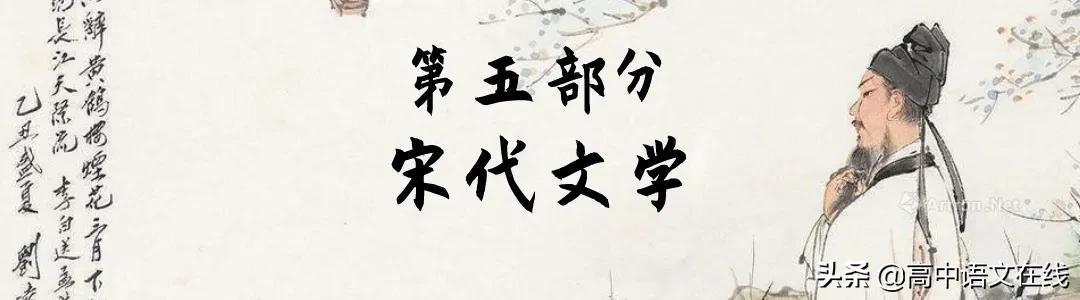 第五部分
宋代文学
辭黄鶴楼煙花三月下
長江天際流 李白送孟
乙丑盛夏 劉
Artron.Net
头条 @高中语文在线